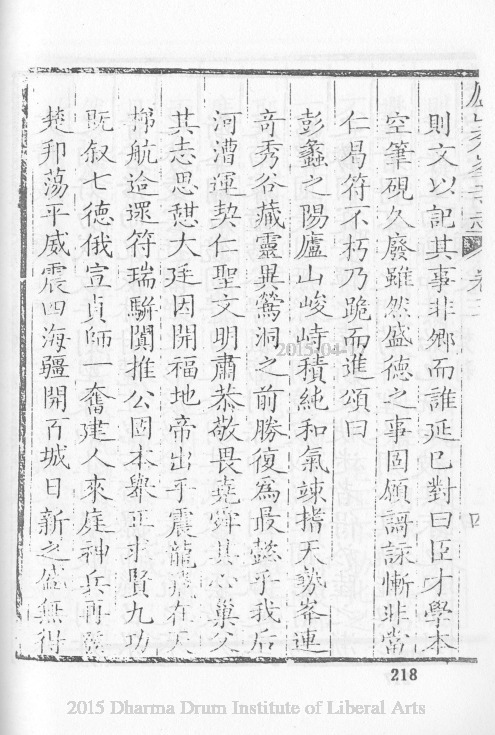 則文以記其事非鄉而誰延巳對曰臣才學本
空筆硯久廢雖然盛德之事固願謌詠慚非當
仁曷符不朽乃跪而進頌曰
彭蠡之陽廬山峻峙積純和氣竦揩天勢峯連
奇秀谷藏靈異鶯洞之前勝復爲最懿乎我后
河漕運契仁聖文明肅恭敬畏堯舜其心巢父
其志思憇大廷因開福地帝出乎震龍飛在天
梯航迨還符瑞駢闐推公固本舉正求賢九功
既叙七德俄宣貞師一奮建人來庭神兵再
楚邦蕩平威震四海疆開百城日新之盛無得
卷三
四
218
2015-04-
2015 Dharma Drum Institute of Liberal Arts